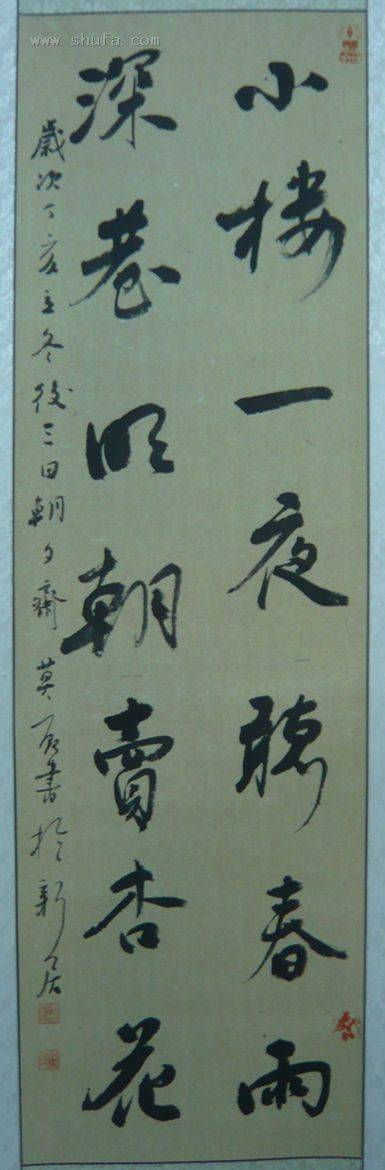 小楼一夜聽春雨
深巷明朝賣杏花
歲次丁亥立冬後三日朝夕齋莫石書於新居
www.shufa.com